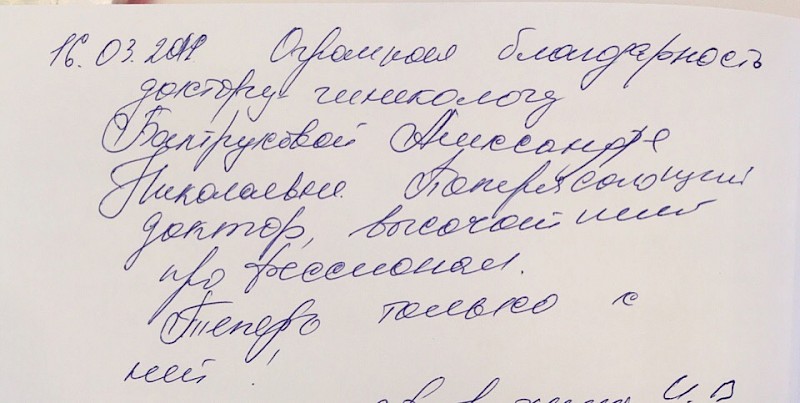 16.03. Огромная благодарность
доктору гинекологу
Александре
Николаевне. Потрясающий
доктор, высочайший
профессионал.
Теперь только к
ней!
И. В